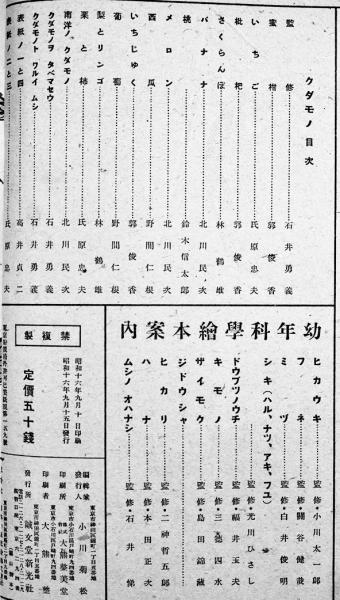 クダモノ 目次
監修 石井勇義
蜜柑 郭俊香
いちご 氏原忠夫
枇杷 郭俊香
さくらんぼ 林鶴雄
バナナ 北川民次
桃 鈴木信太郎
メロン 北川民次
西瓜 野間仁根
いちじゆく 郭俊香
葡萄 野間仁根
梨とリンゴ 林鶴雄
栗と柿 氏原忠夫
南洋ノクダモノ 北川民次
クダモノヲタベマセウ 石井勇義
クダモノトワルイムシ 石井勇義
表紙ノ一と四 高井貞二
表紙ノ二と三 氏原忠夫
幼年科學繪本案内
ヒカウキ 監修・小川太一郎
フネ 監修・關谷健哉
ミヅ 監修・白井俊明
シキ(ハル、ナツ、アキ、フユ)
監修・光川ひさし
ドウブツノウチ 監修・福井玉夫
キモノ 監修・三德四水
ザイモク 監修・島田錦藏
ジドウシャ
ヒカリ 監修・二神哲五郎
ハナ 監修・本田正次
ムシノオハナシ 監修・石井悌
禁複製
昭和十六年九月十日印刷
昭和十六年九月十五日發行
定價五十錢
編輯兼發行人 小川菊松
印刷者 大熊整
印刷所 株式會社 大熊整美堂
發行所 誠文堂新光社